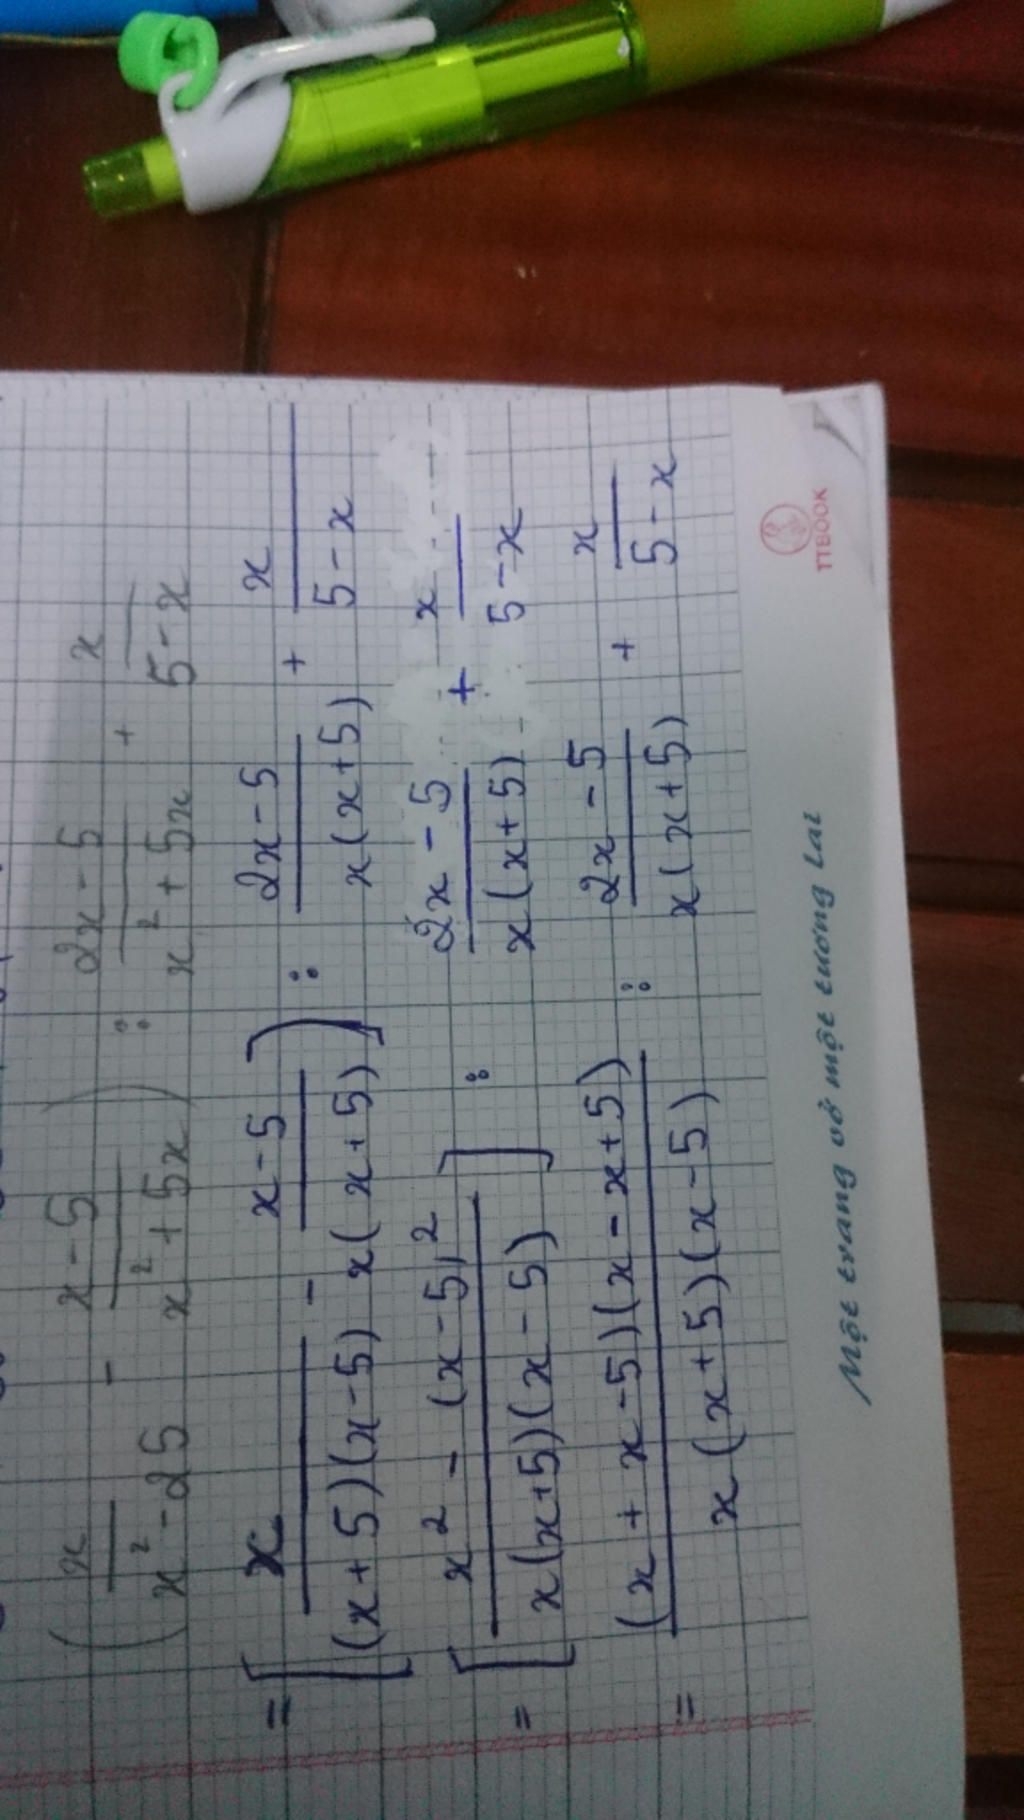 (x/(x²-25) - (x-5)/(x²+5x)) : (2x-5)/(x²+5x) + x/(5-x)
= [x/((x+5)(x-5)) - (x-5)/(x(x+5))] : (2x-5)/(x(x+5)) + x/(5-x)
= [(x² - (x-5)²)/(x(x+5)(x-5))] : (2x-5)/(x(x+5)) + x/(5-x)
= ((x+x-5)(x-x+5))/(x(x+5)(x-5)) : (2x-5)/(x(x+5)) + x/(5-x)
Một trang vở một tương lai
TTBOOK